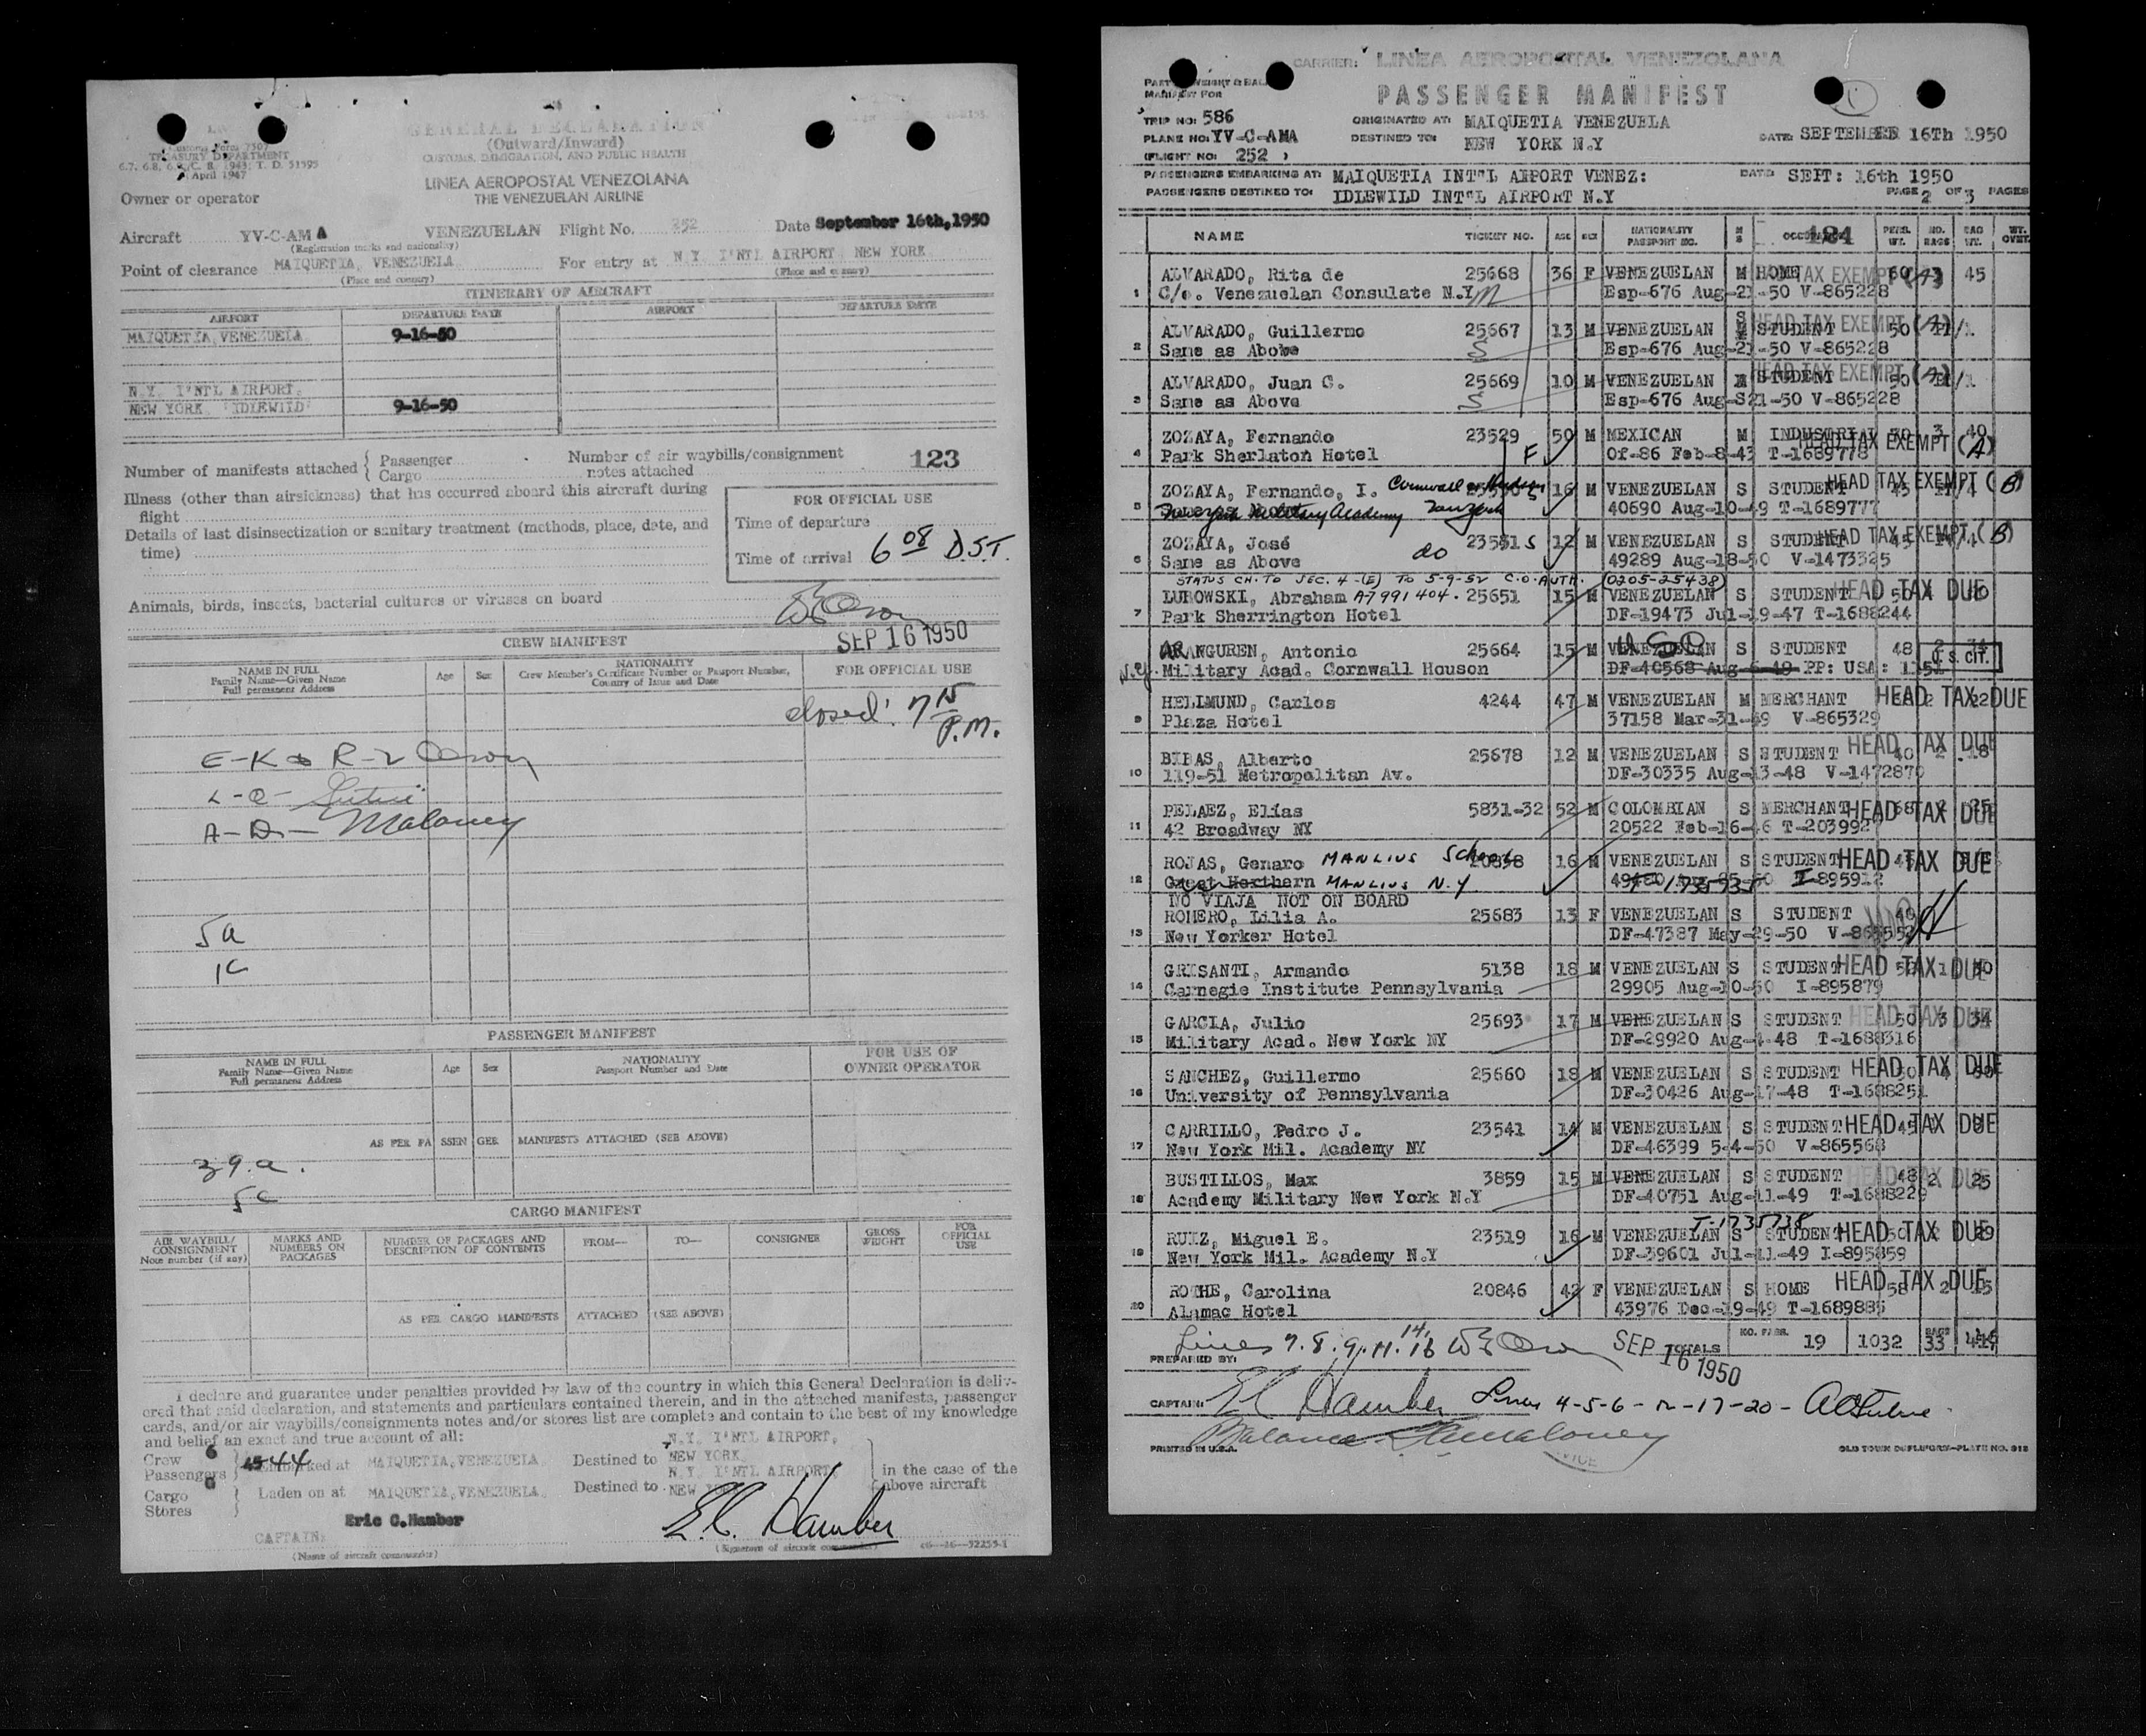 Customs Form 7507
TREASURY DEPARTMENT
6.7, 6.8, 6.9, C. R. 1943; T. D. 51595
April 1947
GENERAL DECLARATION
(Outward/Inward)
CUSTOMS, IMMIGRATION, AND PUBLIC HEALTH
LINEA AEROPOSTAL VENEZOLANA
THE VENEZUELAN AIRLINE
Owner or operator
Aircraft YV-C-AMA VENEZUELAN Flight No. 252 Date September 16th,1950
(Registration marks and nationality)
Point of clearance MAIQUETIA, VENEZUELA For entry at N.Y. I'NTL AIRPORT NEW YORK
(Place and country) (Place and country)
ITINERARY OF AIRCRAFT
AIRPORT DEPARTURE DATE AIRPORT DEPARTURE DATE
MAIQUETIA, VENEZUELA 9-16-50
N.Y. I'NTL AIRPORT,
NEW YORK 'IDLEWILD' 9-16-50
Number of manifests attached { Passenger Cargo
Number of air waybills/consignment notes attached 123
Illness (other than airsickness) that has occurred aboard this aircraft during
flight
Details of last disinsectization or sanitary treatment (methods, place, date, and
time)
FOR OFFICIAL USE
Time of departure
Time of arrival 6 08 D.S.T.
Animals, birds, insects, bacterial cultures or viruses on board
SEP 16 1950
CREW MANIFEST
NAME IN FULL
Family Name—Given Name
Full permanent Address
Age Sex
NATIONALITY
Crew Member's Certificate Number or Passport Number,
Country of Issue and Date
FOR OFFICIAL USE
closed! 7 15 P.M.
E-K & R-Z Olson
L-Q-
A-D- Maloney
5a
1c
PASSENGER MANIFEST
NAME IN FULL
Family Name—Given Name
Full permanent Address
Age Sex
NATIONALITY
Passport Number and Date
FOR USE OF
OWNER OPERATOR
AS PER PASSENGER MANIFESTS ATTACHED (SEE ABOVE)
39.a.
5c
CARGO MANIFEST
AIR WAYBILL/
CONSIGNMENT
Note number (if any)
MARKS AND
NUMBERS ON
PACKAGES
NUMBER OF PACKAGES AND
DESCRIPTION OF CONTENTS
FROM— TO— CONSIGNEE
GROSS
WEIGHT
FOR
OFFICIAL
USE
AS PER CARGO MANIFESTS ATTACHED (SEE ABOVE)
I declare and guarantee under penalties provided by law of the country in which this General Declaration is deliv-
ered that said declaration, and statements and particulars contained therein, and in the attached manifests, passenger
cards, and/or air waybills/consignments notes and/or stores list are complete and contain to the best of my knowledge
and belief an exact and true account of all:
Crew 6
Passengers 44 Embarked at MAIQUETIA, VENEZUELA Destined to N.Y. I'NTL AIRPORT, NEW YORK
Cargo
Stores Laden on at MAIQUETIA, VENEZUELA Destined to N.Y. I'NTL AIRPORT, NEW YORK
in the case of the
above aircraft
Eric C.Hamber
E.C. Hamber
CAPTAIN:
(Name of aircraft commander) (Signature of aircraft commander) 16—52255-1
CARRIER: LINEA AEROPOSTAL VENEZOLANA
MANIFEST FOR
PASSENGER MANIFEST
TRIP NO: 586 ORIGINATED AT: MAIQUETIA VENEZUELA
PLANE NO: YV-C-AMA DESTINED TO: NEW YORK N.Y DATE: SEPTEMBER 16Th 1950
(FLIGHT NO: 252 )
PASSENGERS EMBARKING AT: MAIQUETIA INT"L AIPORT VENEZ: DATE: SEPT: 16th 1950
PASSENGERS DESTINED TO: IDLEWILD INT"L AIRPORT N.Y PAGE 2 OF 3 PAGES
NAME TICKET NO. AGE SEX NATIONALITY PASSPORT NO. M S OCCUPATION 184 PERS. WT. NO. BAGS BAG WT. WT. OVER.
1 ALVARADO, Rita de 25668 36 F VENEZUELAN M HOME HEAD TAX EXEMPT (A) 60 3 45
C/o. Venezuelan Consulate N.Y Esp-676 Aug-21-50 V-865228
2 ALVARADO, Guillermo 25667 13 M VENEZUELAN S STUDENT HEAD TAX EXEMPT (A) 50
Sane as Above S Esp-676 Aug-21-50 V-865228
3 ALVARADO, Juan C. 25669 10 M VENEZUELAN STUDENT HEAD TAX EXEMPT (A)
Sane as Above S Esp-676 Aug-21-50 V-865228
4 ZOZAYA, Fernando 23529 50 M MEXICAN M INDUSTRIAL 3 40 HEAD TAX EXEMPT (A)
Park Sherlaton Hotel F Of-86 Feb-8-43 T-1689778
5 ZOZAYA, Fernando, I. Cornwall on Hudson 16 M VENEZUELAN S STUDENT HEAD TAX EXEMPT (B)
New York Military Academy New York 40690 Aug-10-49 T-1689777
6 ZOZAYA, José 23531 S 12 M VENEZUELAN S STUDENT HEAD TAX EXEMPT (B)
Sane as Above do 49289 Aug-18-50 V-1473325
STATUS CH. TO SEC. 4-(E) TO 5-9-52 C.O. AUTH. (0205-25438)
7 LUROWSKI, Abraham A7991404. 25651 15 M VENEZUELAN S STUDENT HEAD TAX DUE
Park Sherrington Hotel DF-19473 Jul-19-47 T-1688244
ARANGUREN, Antonio 25664 15 M VENEZUELAN S STUDENT 48 2 34
N.Y. Military Acad. Cornwall Houson DF-40568 Aug-6-49 PP: USA: 1151 U.S. CIT.
9 HELLMUND, Carlos 4244 47 M VENEZUELAN M MERCHANT HEAD TAX DUE
Plaza Hotel 37158 Mar-31-49 V-865329
10 BIBAS, Alberto 25678 12 M VENEZUELAN S STUDENT HEAD TAX DUE 40 2 18
119-51 Metropolitan Av. DF-30335 Aug-13-48 V-1472870
11 PELAEZ, Elias 5831-32 52 M COLOMBIAN S MERCHANT HEAD TAX DUE 68 2 25
42 Broadway NY 20522 Feb-16-46 T-203992
12 ROJAS, Genaro MANLIUS School 20838 16 M VENEZUELAN S STUDENT HEAD TAX DUE
Great Northern MANLIUS N.Y I-895912 T-1735735
NO VIAJA NOT ON BOARD
13 ROMERO, Lilia A. 25683 13 F VENEZUELAN S STUDENT 40
New Yorker Hotel DF-47387 May-29-50
14 GRISANTI, Armando 5138 18 M VENEZUELAN S STUDENT HEAD TAX DUE
Carnegie Institute Pennsylvania 29905 Aug-10-50 I-895879
15 GARCIA, Julio 25693 17 M VENEZUELAN S STUDENT HEAD TAX DUE 50 3 34
Military Acad. New York NY DF-29920 Aug-4-48 T-1688316
16 SANCHEZ, Guillermo 25660 18 M VENEZUELAN S STUDENT HEAD TAX DUE
University of Pennsylvania DF-30426 Aug-17-48 T-1688251
17 CARRILLO, Pedro J. 23541 14 M VENEZUELAN S STUDENT HEAD TAX DUE
New York Mil. Academy NY DF-46399 5-4-50 V-865568
18 BUSTILLOS, Max 3859 15 M VENEZUELAN S STUDENT HEAD TAX DUE 48 2 25
Academy Military New York N.Y DF-40751 Aug-11-49 T-1688229
T-1735738
19 RUIZ, Miguel E. 23519 16 M VENEZUELAN S STUDENT HEAD TAX DUE
New York Mil. Academy N.Y DF-39601 Jul-11-49 I-895859
20 ROTHE, Carolina 20846 42 F VENEZUELAN S HOME HEAD TAX DUE 58 2 15
Alamac Hotel 43976 Dec-19-49 T-1689885
Lines 7.8.9.11.14.16 Olson SEP 16 1950 TOTALS NO. PASS. 19 1032 BAGS 33
PREPARED BY:
CAPTAIN: E.C. Hamber Lines 4-5-6-12-17-20-
Balance Maloney
PRINTED IN U.S.A. OLD TOWN DUPLIFORM—PLATE NO. 912